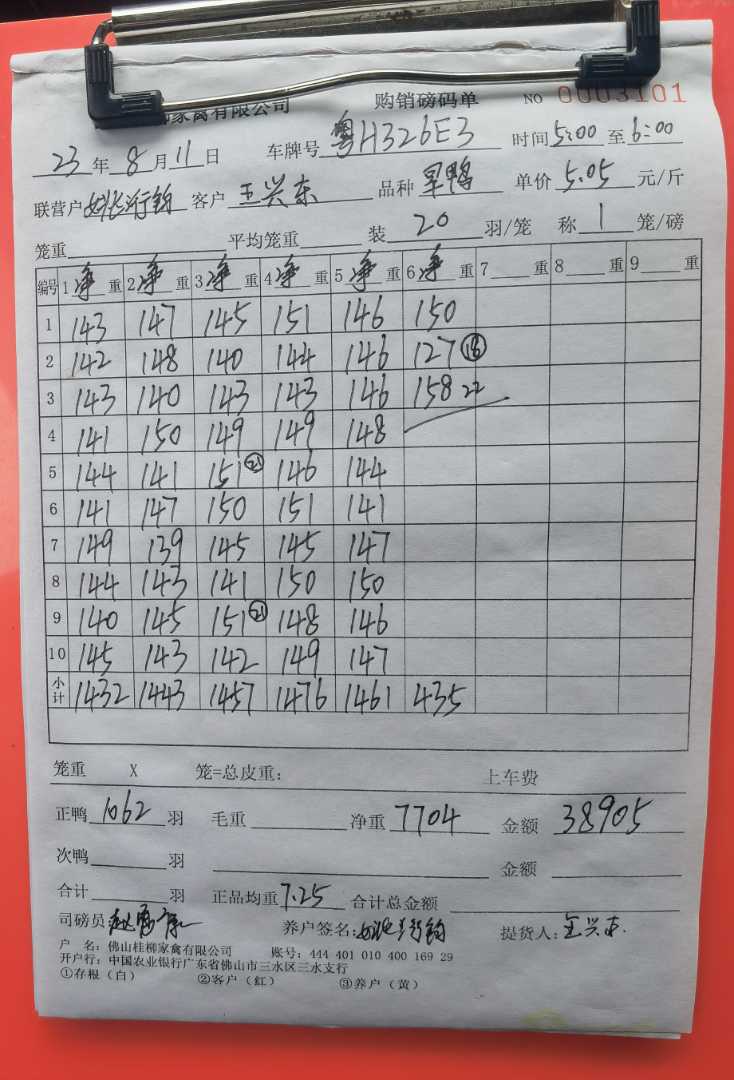 家禽有限公司 购销磅码单 NO 0003101
23 年 8 月 11 日 车牌号 粤H326E3 时间 5:00 至 6:00
联营户 客户 王兴东 品种 旱鸭 单价 5.05 元/斤
笼重 平均笼重 装 20 羽/笼 称 1 笼/磅
编号 1 净 重 2 净 重 3 净 重 4 净 重 5 净 重 6 净 重 7 重 8 重 9 重
1 143 147 145 151 146 150
2 142 148 140 144 146 127 ⑱
3 143 140 143 143 146 158 22
4 141 150 149 149 148
5 144 141 151 ㉑ 146 144
6 141 147 150 151 141
7 149 139 145 145 147
8 144 143 141 150 150
9 140 145 151 ㉑ 148 146
10 145 143 142 149 147
小计 1432 1443 1457 1476 1461 435
笼重 X 笼=总皮重: 上车费
正鸭 1062 羽 毛重 净重 7704 金额 38905
次鸭 羽 金额
合计 羽 正品均重 7.25 合计总金额
司磅员 养户签名: 提货人: 王兴东
户 名: 佛山桂柳家禽有限公司 账号: 444 401 010 400 169 29
开户行: 中国农业银行广东省佛山市三水区三水支行
①存根（白） ②客户（红） ③养户（黄）